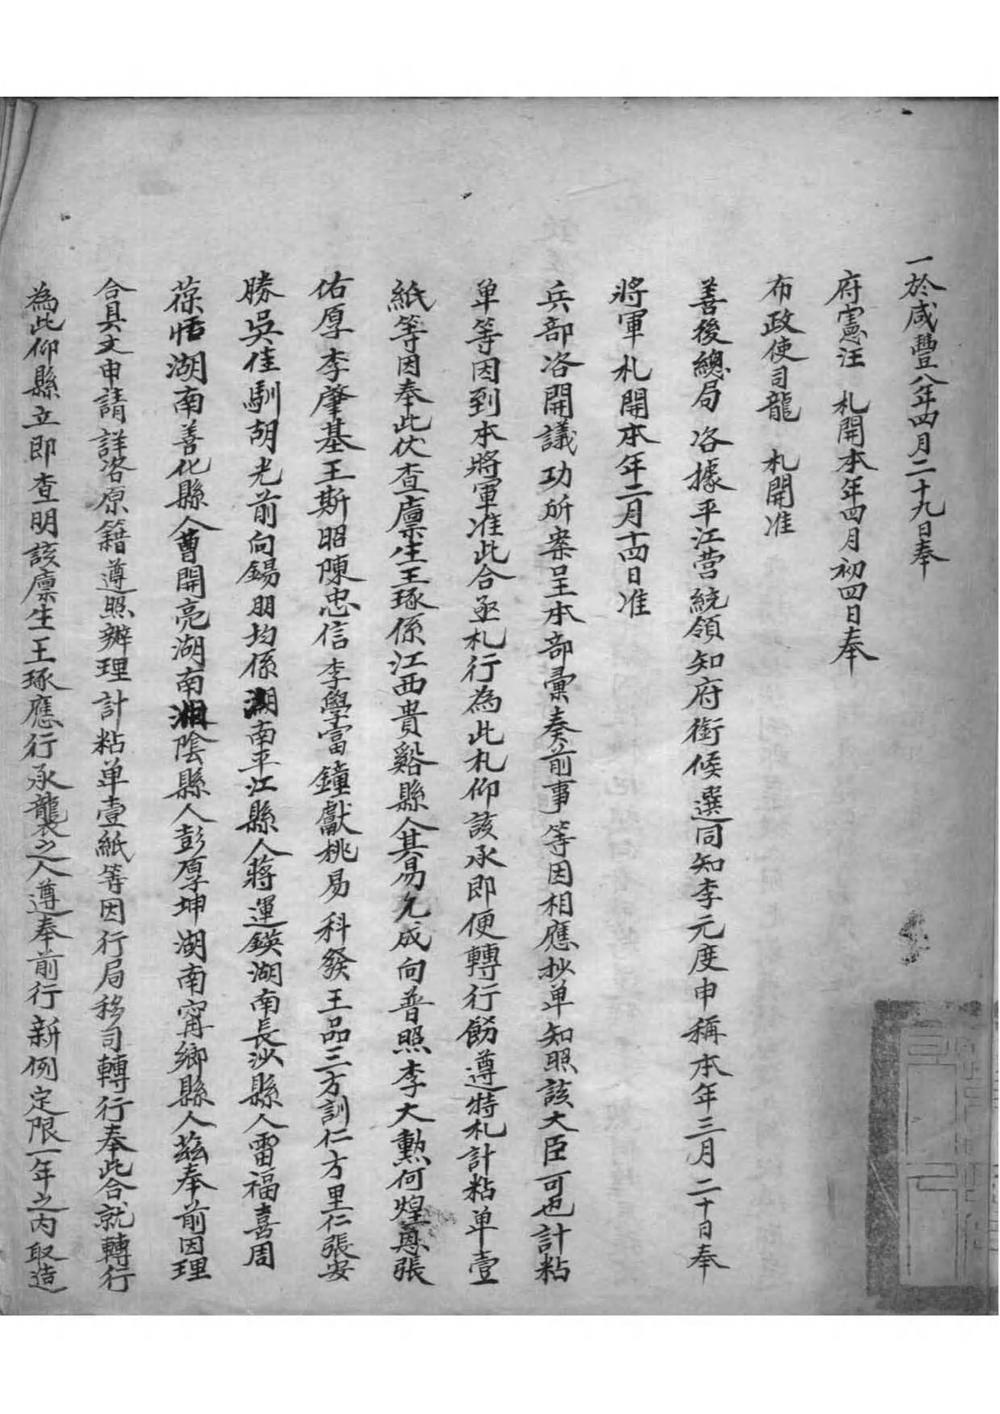 一於咸豐八年四月二十九日奉
府憲汪　札開本年四月初四日奉
布政使司龍　札開准
善後總局咨據平江营統領知府銜候選同知李元度申稱本年三月二十日奉
將軍札開本年二月十四日准
兵部咨開議功所案呈本部彙奏前事等因相應抄单知照該大臣可也計粘
单等因到本將軍准此合亟札行為此札仰該承即便轉行飭遵特札計粘单壹
紙等因奉此伏查廪生王琢係江西貴谿縣人其易允成向普照李大勲何煌恩張
佑厚李肇基王斯昭陳忠信李學富鐘獻桃易科發王品三方訓仁方里仁張安
勝吳佳馴胡光前向錫朋均係湖南平江縣人蔣運鍈湖南長沙縣人雷福喜周
葆恬湖南善化縣人曹開亮湖南湘陰縣人彭厚坤湖南甯鄉縣人茲奉前因理
合具文申請詳咨原籍遵照辦理計粘单壹紙等因行局移司轉行奉此合就轉行
為此仰縣立即查明該廪生王琢應行承襲之人遵奉前行新例定限一年之内取造